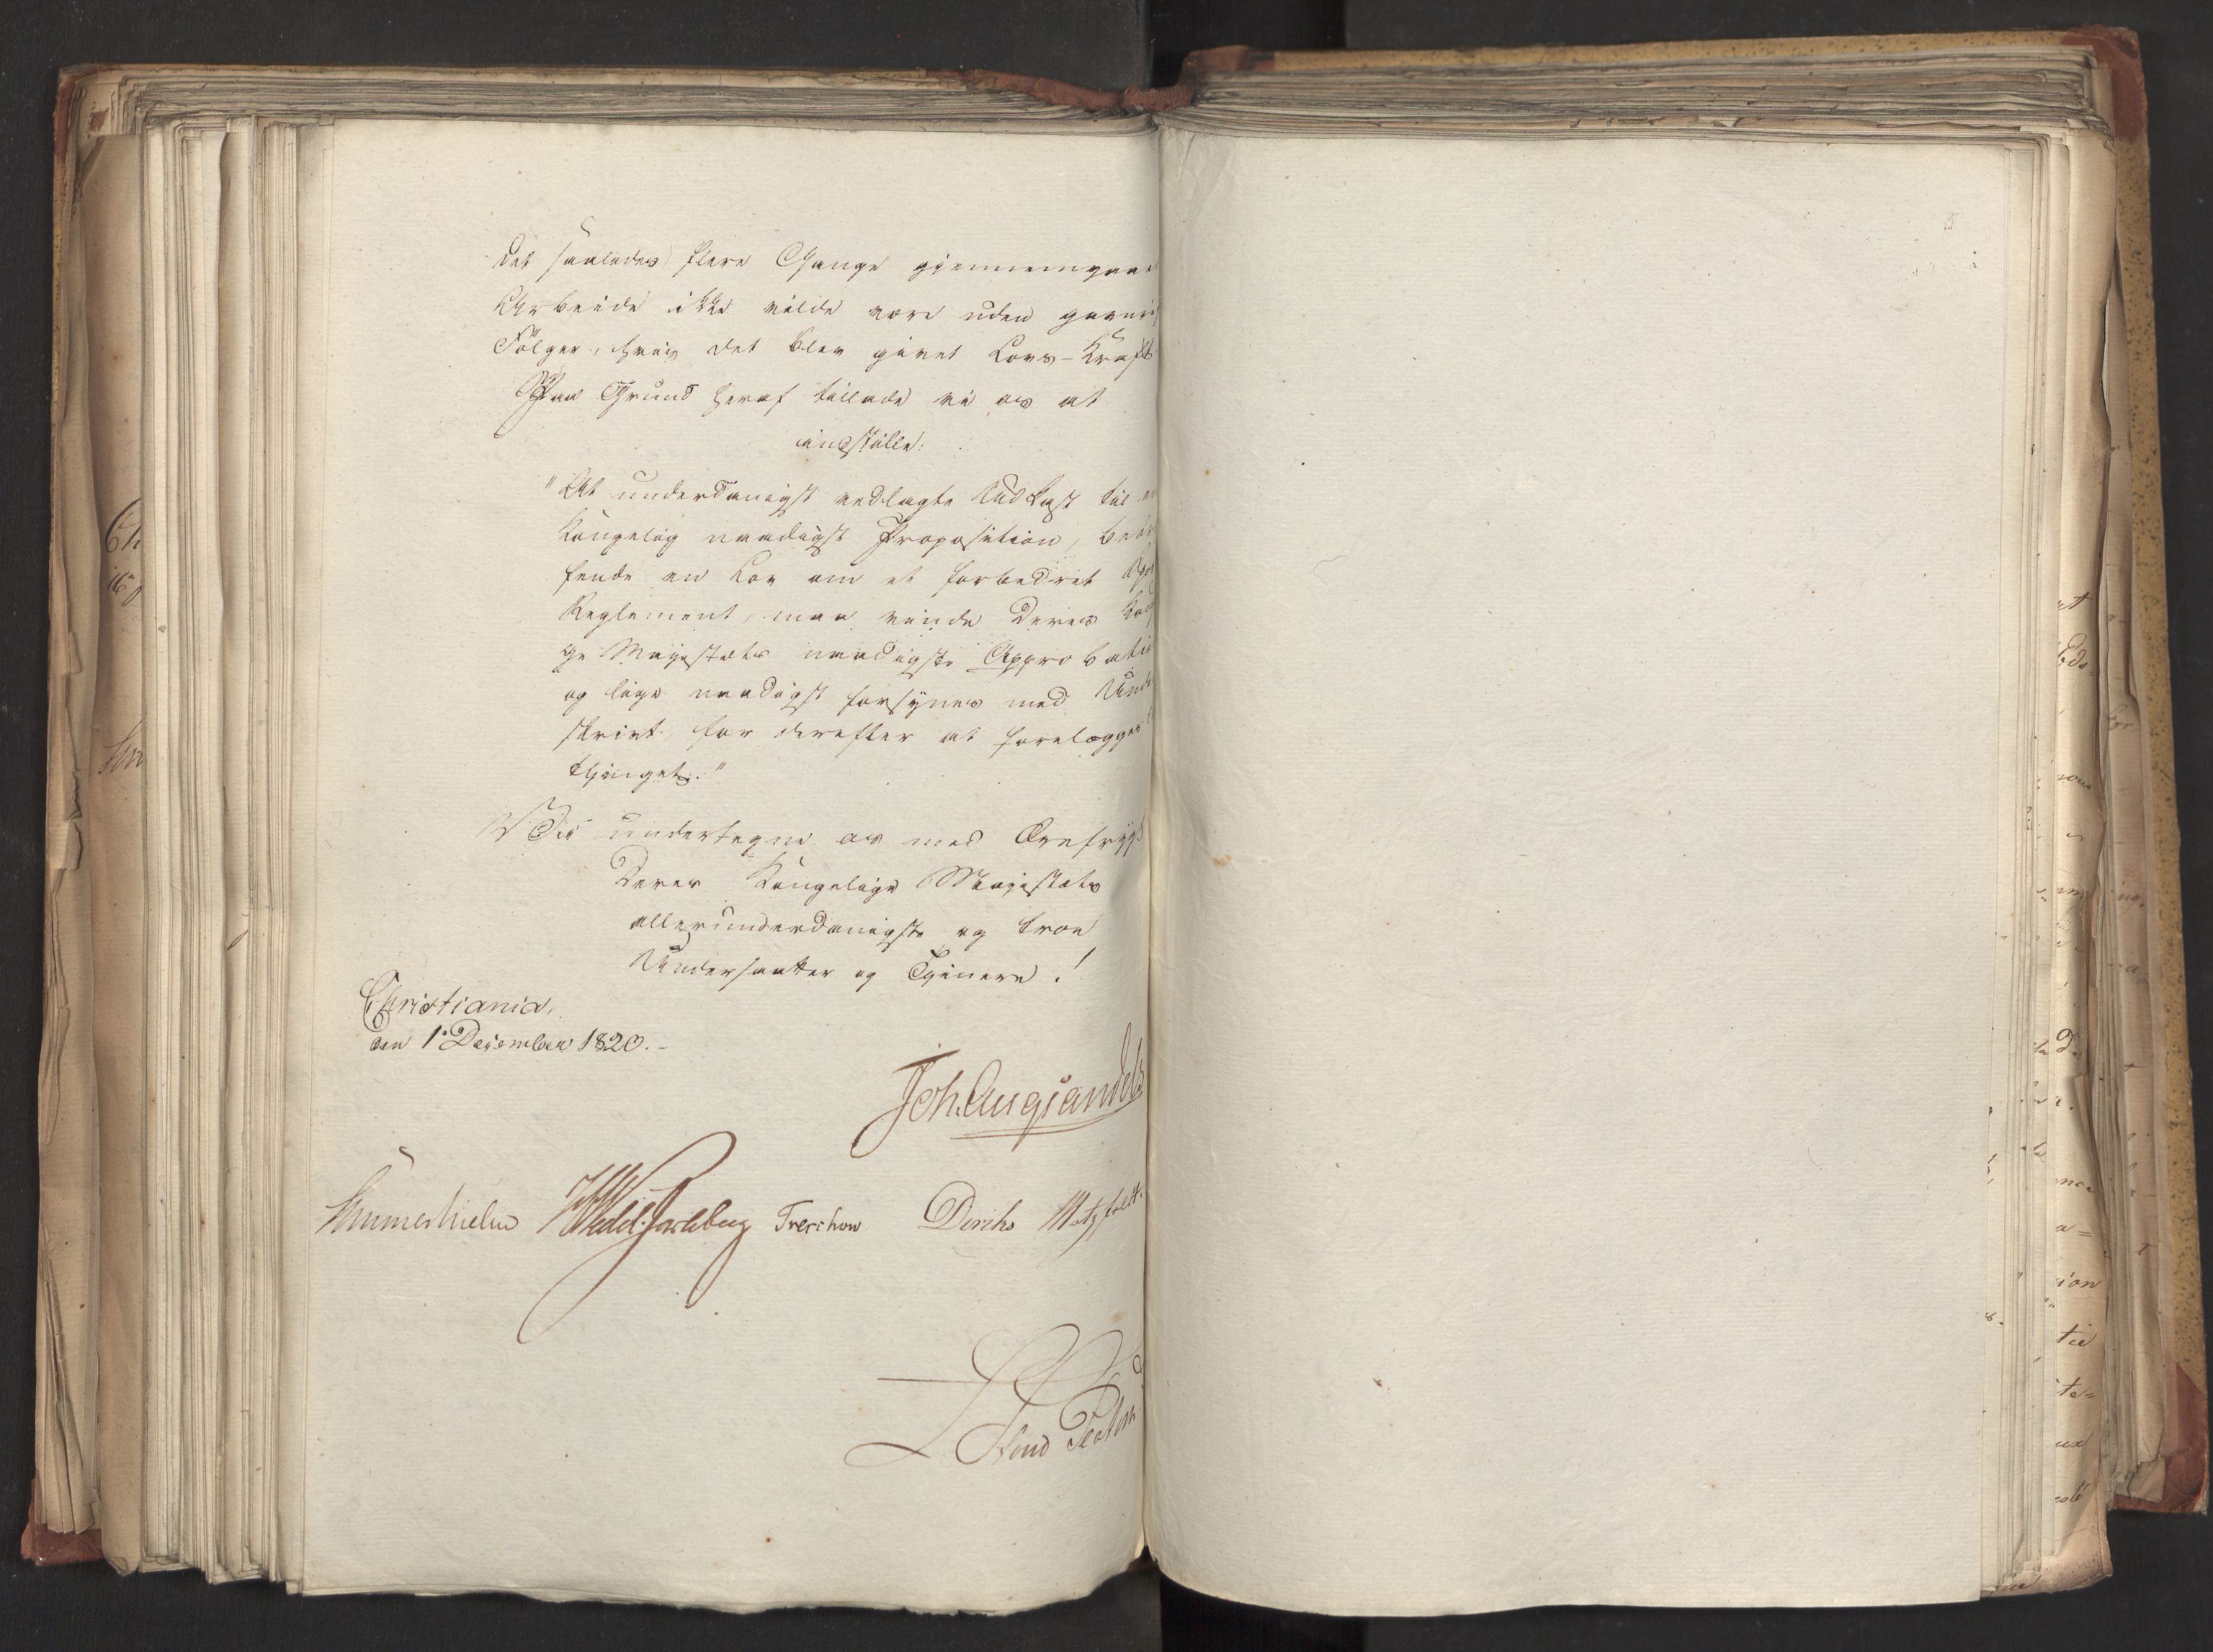 det saaledes flere Gange gjennemgaae
Arbeide ikke vilde være uden gavnli
Følger, hvis det blev givet Lovs-Kraft
Paa Grund heraf tillade vi os at
indstille:
"At underdanigst vedlagte Udkast til en
Kongelig naadigst Proposition, be
fende en Lov om et forbedret
Reglement, maa vinde Deres Kong
ge Majestæts naadigste Approbatio
og lige naadigst forsynes med Under
skrivt, for derefter at forelægges
thinget."
Vi undertegne os med Ærefrygt
Deres Kongelige Majestæts
allerunderdanigste og troe
Undersaatter og Tjenere!
Christiania,
den 1e December 1820.-
Joh. Aug. Sandels
Sommerhielm HWedel Jarlsberg Treschow Diriks Motzfeldt